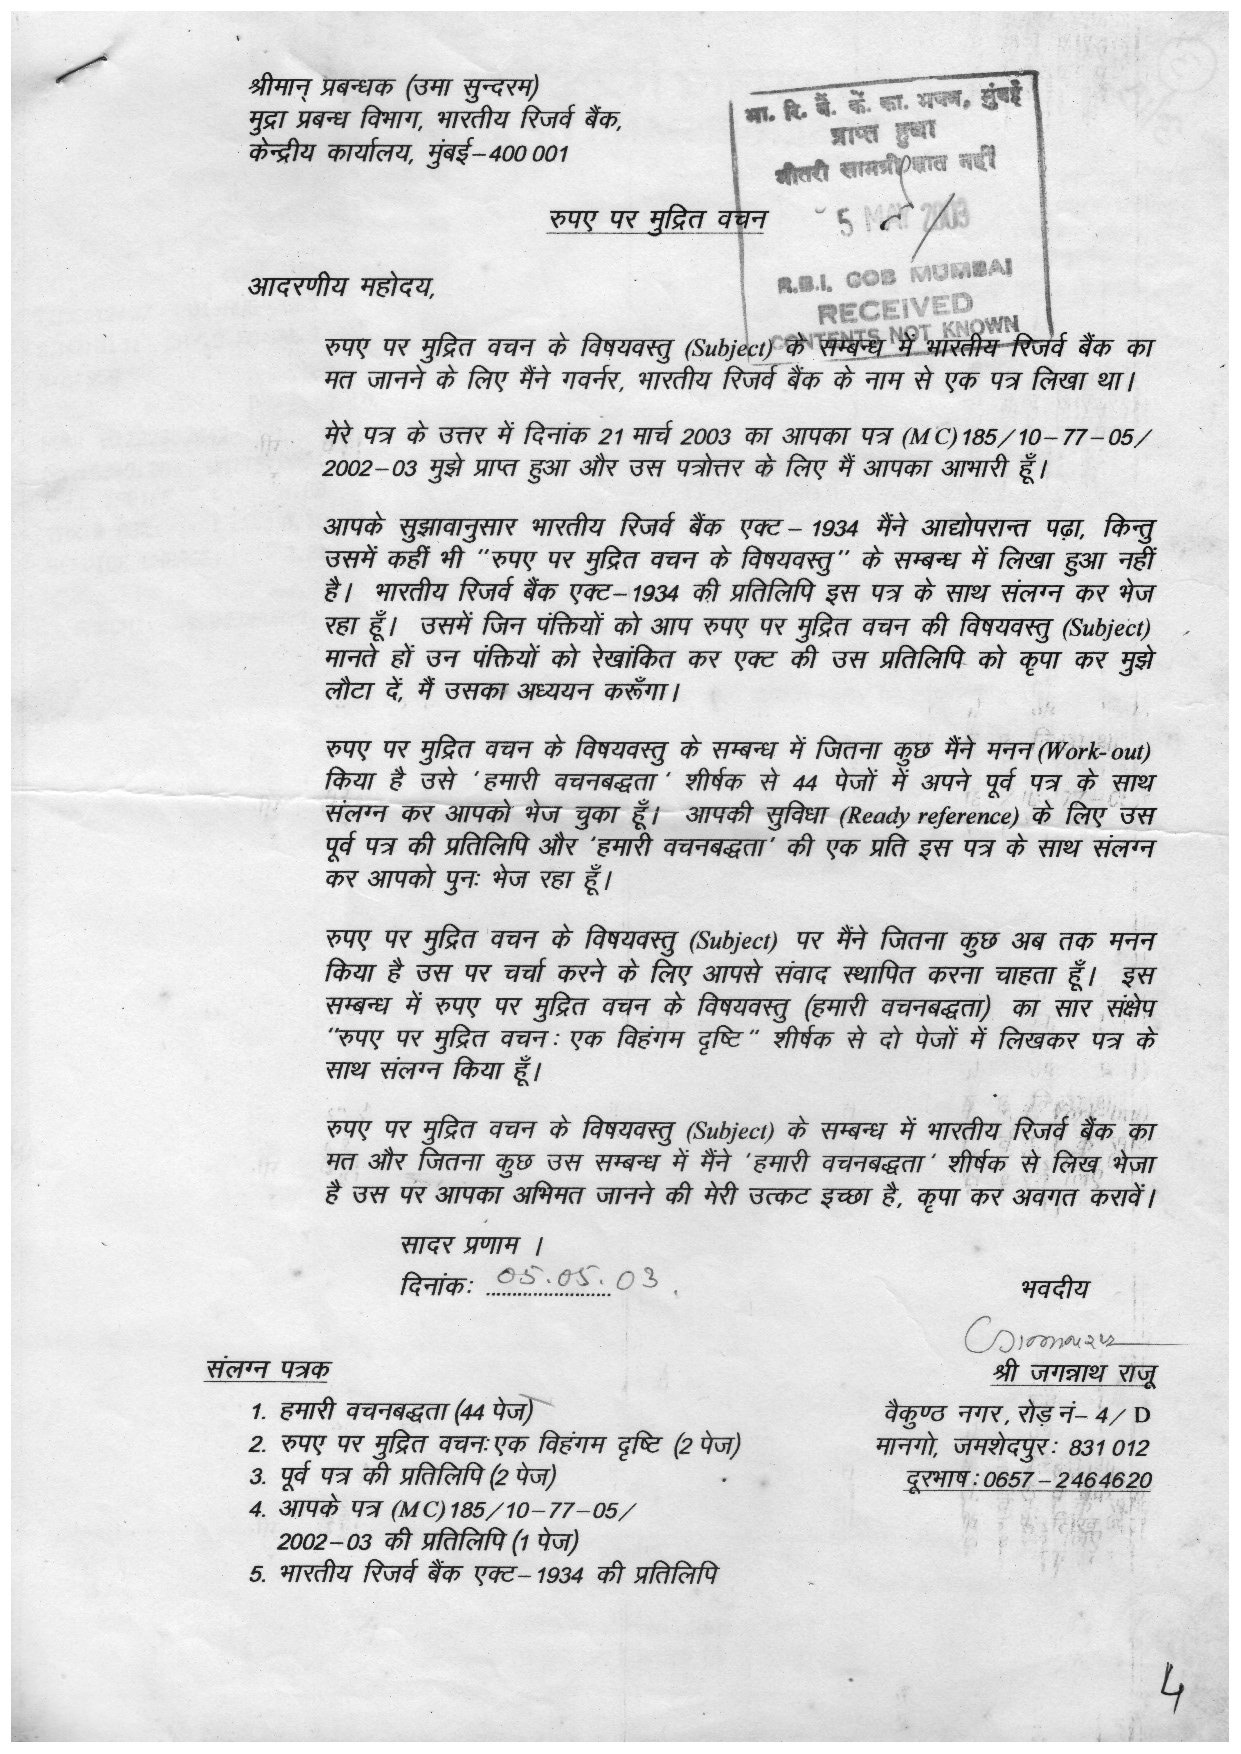 श्रीमान् प्रबन्धक (उमा सुन्दरम)
मुद्रा प्रबन्ध विभाग, भारतीय रिजर्व बैंक,
केन्द्रीय कार्यालय, मुंबई–400 001
भा. रि. बैं. कें. का. भवन, मुंबई
प्राप्त हुआ
भीतरी सामग्री ज्ञात नहीं
5 MAY 2003
R.B.I. COB MUMBAI
RECEIVED
CONTENTS NOT KNOWN
रुपए पर मुद्रित वचन
आदरणीय महोदय,
रुपए पर मुद्रित वचन के विषयवस्तु (Subject) के सम्बन्ध में भारतीय रिजर्व बैंक का
मत जानने के लिए मैंने गवर्नर, भारतीय रिजर्व बैंक के नाम से एक पत्र लिखा था।
मेरे पत्र के उत्तर में दिनांक 21 मार्च 2003 का आपका पत्र (MC)185/10–77–05/
2002–03 मुझे प्राप्त हुआ और उस पत्रोत्तर के लिए मैं आपका आभारी हूँ।
आपके सुझावानुसार भारतीय रिजर्व बैंक एक्ट– 1934 मैंने आद्योपरान्त पढ़ा, किन्तु
उसमें कहीं भी "रुपए पर मुद्रित वचन के विषयवस्तु" के सम्बन्ध में लिखा हुआ नहीं
है। भारतीय रिजर्व बैंक एक्ट–1934 की प्रतिलिपि इस पत्र के साथ संलग्न कर भेज
रहा हूँ। उसमें जिन पंक्तियों को आप रुपए पर मुद्रित वचन की विषयवस्तु (Subject)
मानते हों उन पंक्तियों को रेखांकित कर एक्ट की उस प्रतिलिपि को कृपा कर मुझे
लौटा दें, मैं उसका अध्ययन करूँगा।
रुपए पर मुद्रित वचन के विषयवस्तु के सम्बन्ध में जितना कुछ मैंने मनन (Work-out)
किया है उसे 'हमारी वचनबद्धता' शीर्षक से 44 पेजों में अपने पूर्व पत्र के साथ
संलग्न कर आपको भेज चुका हूँ। आपकी सुविधा (Ready reference) के लिए उस
पूर्व पत्र की प्रतिलिपि और 'हमारी वचनबद्धता' की एक प्रति इस पत्र के साथ संलग्न
कर आपको पुनः भेज रहा हूँ।
रुपए पर मुद्रित वचन के विषयवस्तु (Subject) पर मैंने जितना कुछ अब तक मनन
किया है उस पर चर्चा करने के लिए आपसे संवाद स्थापित करना चाहता हूँ। इस
सम्बन्ध में रुपए पर मुद्रित वचन के विषयवस्तु (हमारी वचनबद्धता) का सार संक्षेप
"रुपए पर मुद्रित वचन : एक विहंगम दृष्टि" शीर्षक से दो पेजों में लिखकर पत्र के
साथ संलग्न किया हूँ।
रुपए पर मुद्रित वचन के विषयवस्तु (Subject) के सम्बन्ध में भारतीय रिजर्व बैंक का
मत और जितना कुछ उस सम्बन्ध में मैंने 'हमारी वचनबद्धता' शीर्षक से लिख भेजा
है उस पर आपका अभिमत जानने की मेरी उत्कट इच्छा है, कृपा कर अवगत करावें।
सादर प्रणाम ।
दिनांकः 05.05.03
भवदीय
श्री जगन्नाथ राजू
वैकुण्ठ नगर, रोड़ नं– 4/ D
मानगो, जमशेदपुर: 831 012
दूरभाष : 0657–2464620
संलग्न पत्रक
1. हमारी वचनबद्धता (44 पेज)
2. रुपए पर मुद्रित वचन: एक विहंगम दृष्टि (2 पेज)
3. पूर्व पत्र की प्रतिलिपि (2 पेज)
4. आपके पत्र (MC)185/10–77–05/
2002–03 की प्रतिलिपि (1 पेज)
5. भारतीय रिजर्व बैंक एक्ट–1934 की प्रतिलिपि
4